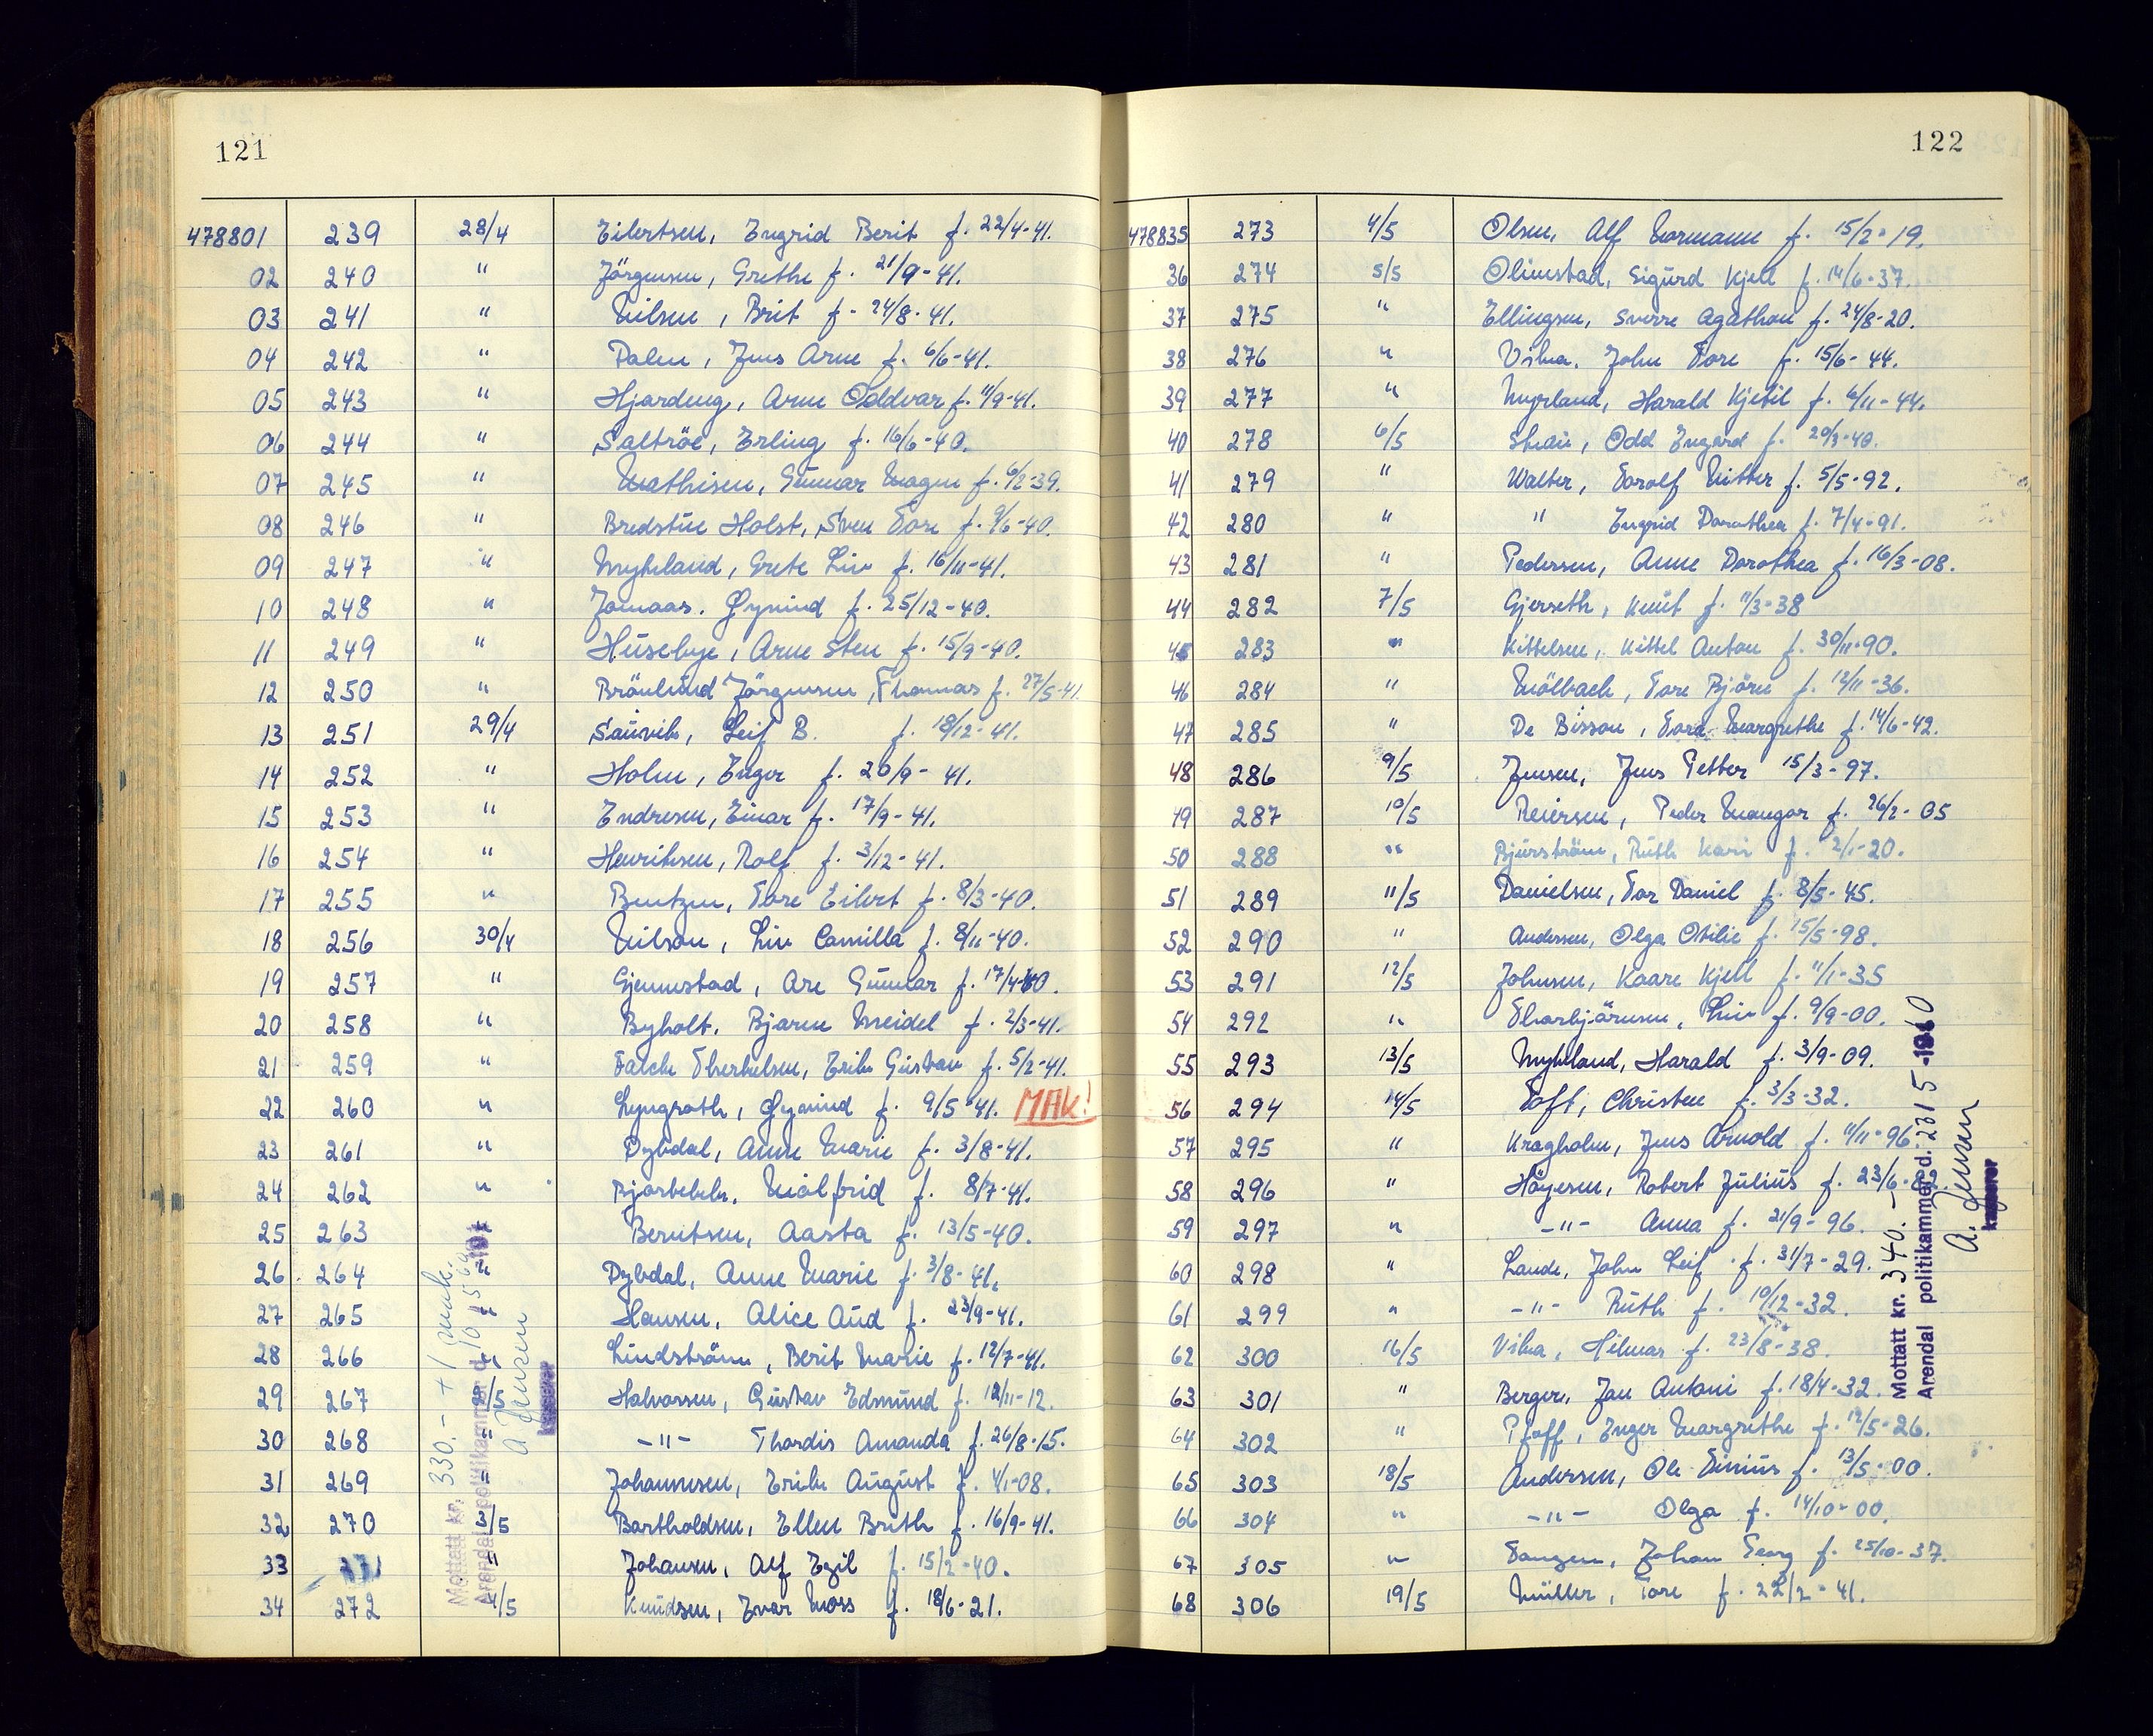 121
478801 239 28/4 Eilertsen, Ingrid Berit f. 22/4-41.
02 240 " Jörgensen, Grethe f. 21/9-41.
03 241 " Nilsen, Brit f. 24/8-41.
04 242 " Palm, Jens Arne f. 6/6-41.
05 243 " Hjardeng, Arne Oddvar f. 11/9-41.
06 244 " Saltröe, Erling f. 16/6-40.
07 245 " Mathisen, Gunnar Magne f. 6/2-39.
08 246 " Bredstue Holst, Sven Tore f. 9/6-40.
09 247 " Myhrland, Grete Liv f. 16/11-41.
10 248 " Jomaas. Øyvind f. 25/12-40.
11 249 " Huseby, Arne Sten f. 15/9-40.
12 250 " Brönlund Jörgensen, Thomas f. 27/5-41.
13 251 29/4 Sauvik, Leif B. f. 18/12-41.
14 252 " Holm, Inger f. 20/9-41.
15 253 " Endresen, Einar f. 17/9-41.
16 254 " Henriksen, Rolf f. 3/12-41.
17 255 " Bentzen, Tore Eilert f. 8/3-40.
18 256 30/4 Nilson, Liv Camilla f. 8/11-40.
19 257 " Gjennestad, Are Gunnar f. 17/4-40.
20 258 " Byholt, Bjarne Meidel f. 2/3-41.
21 259 " Falck Therkelsen, Erik Gustav f. 5/2-41.
22 260 " Lyngroth, Øyvind f. 9/5-41. MAK!
23 261 " Dybdal, Anne Marie f. 3/8-41.
24 262 " Målfrid f. 8/7-41.
25 263 Berntsen, Aasta f. 13/5-40.
26 264 " Dybdal, Anne Marie f. 3/8-41.
27 265 " Hansen, Alice Aud f. 23/9-41.
28 266 " Lindström, Berit Marie f. 12/7-41.
29 267 2/5 Halvorsen, Gustav Edmund f. 12/11-12.
30 268 " -"- Thordis Amanda f. 26/8-15.
31 269 " Johannesen, Erik August f. 4/1-08.
32 270 3/5 Bartholdsen, Ellen Brith f. 16/9-41.
33 271 " Johansen, Alf Egil f. 15/2-40.
34 272 4/5 Knudsen, Ivar Moss f. 18/6-21.
Mottatt kr. 330.- + 1
Arendal politikammer d. 10/5
A Jensen
kasserer
122
478835 273 4/5 Olsen, Alf Normann f. 15/2-19.
36 274 5/5 Olimstad, Sigurd Kjell f. 14/6-37.
37 275 " Ellingsen, Sverre Agathon f. 24/8-20.
38 276 " Vilna. John Tore f. 15/6-44.
39 277 " Myrland, Harald Kjetil f. 6/11-44.
40 278 6/5 Odd Ingard f. 20/3-40.
41 279 " Walter, Torolf Nitter f. 5/5-92.
42 280 " " Ingrid Dorothea f. 7/4-91.
43 281 " Pedersen, Anne Dorothea f. 16/3-08.
44 282 7/5 Gjerseth, Knut f. 11/3-38
45 283 " Kittelsen, Kittel Anton f. 30/11-90.
46 284 " Mölbach, Tore Björn f. 12/11-36.
47 285 " De Bisson, Tora Margrethe f. 14/6-42.
48 286 9/5 Jensen, Jens Petter 15/3-97.
49 287 10/5 Reiersen, Peder Mangor f. 26/2-05
50 288 " Bjurström, Ruth Kari f. 2/1-20.
51 289 11/5 Danielsen, Tor Daniel f. 8/5-45.
52 290 " Andersen, Olga Otilie f. 15/5-98.
53 291 12/5 Johnsen, Kaare Kjell f. 11/1-35
54 292 " Thorbjörnsen, Liv f. 9/9-00.
55 293 13/5 Myhrland, Harald f. 3/9-09.
56 294 14/5 Toft, Christen f. 3/3-32.
57 295 " Kragholm, Jens Arnold f. 11/11-96.
58 296 " Höyesen, Robert Julius f. 23/6-
59 297 " -"- Anna f. 21/9-96.
60 298 " Lande, John Leif f. 31/7-29.
61 299 " -"- Ruth f. 10/12-32.
62 300 16/5 Vilna, Hilmar f. 23/8-38.
63 301 " Berger, Jan Antoni f. 18/4-32.
64 302 " Pfaff, Inger Margrethe f. 12/5-26.
65 303 18/5 Andersen, Ole Sinius f. 13/5-00.
66 304 " -"- Olga f. 14/10-00.
67 305 " Tangen, Johan Georg f. 25/10-37.
68 306 19/5 Müller, Tore f. 22/2-41.
Mottatt kr. 340.-
Arendal politikammer d. 2315-1960
A. Jensen
kasserer